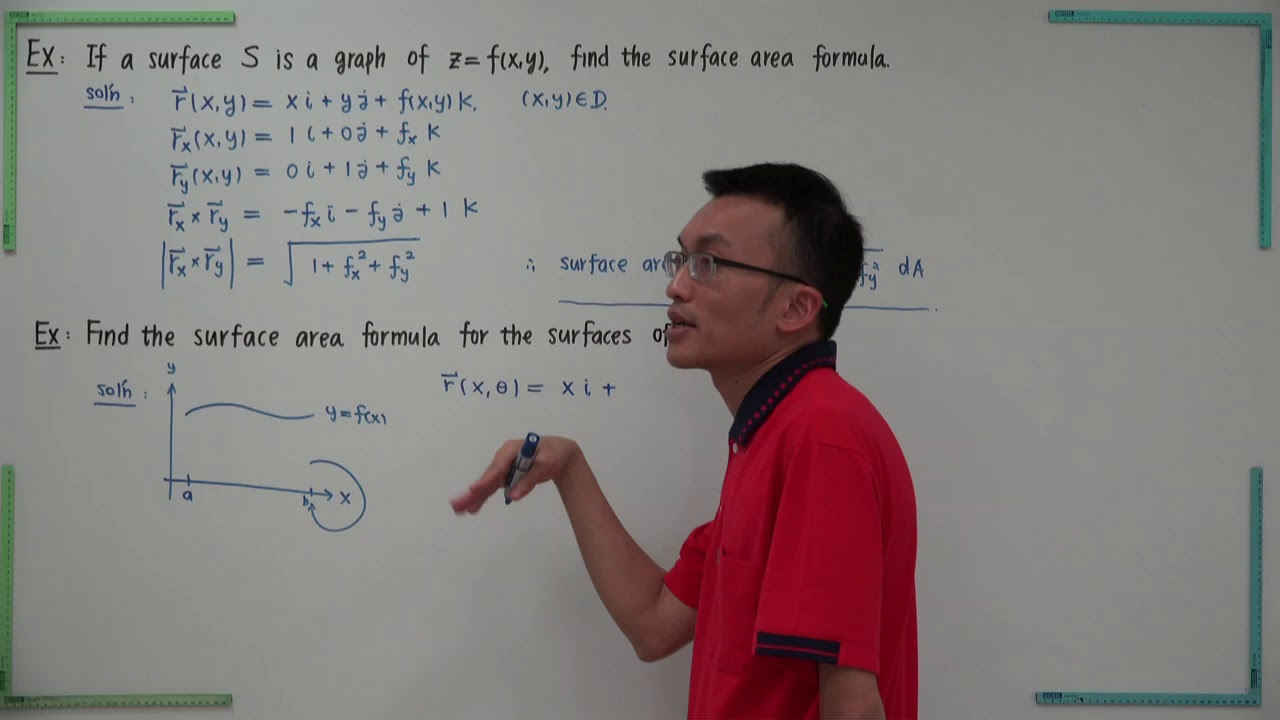 Ex: If a surface S is a graph of z=f(x,y), find the surface area formula.
sol'n: r⃗(x,y) = x i + y j + f(x,y) k, (x,y)∈D.
r⃗x(x,y) = 1 i + 0 j + fx k
r⃗y(x,y) = 0 i + 1 j + fy k
r⃗x × r⃗y = -fx i - fy j + 1 k
|r⃗x × r⃗y| = √(1 + fx² + fy²) ∴ surface fy² dA
Ex: Find the surface area formula for the surfaces
sol'n: r⃗(x,θ) = x i +
y
y=f(x)
a b x